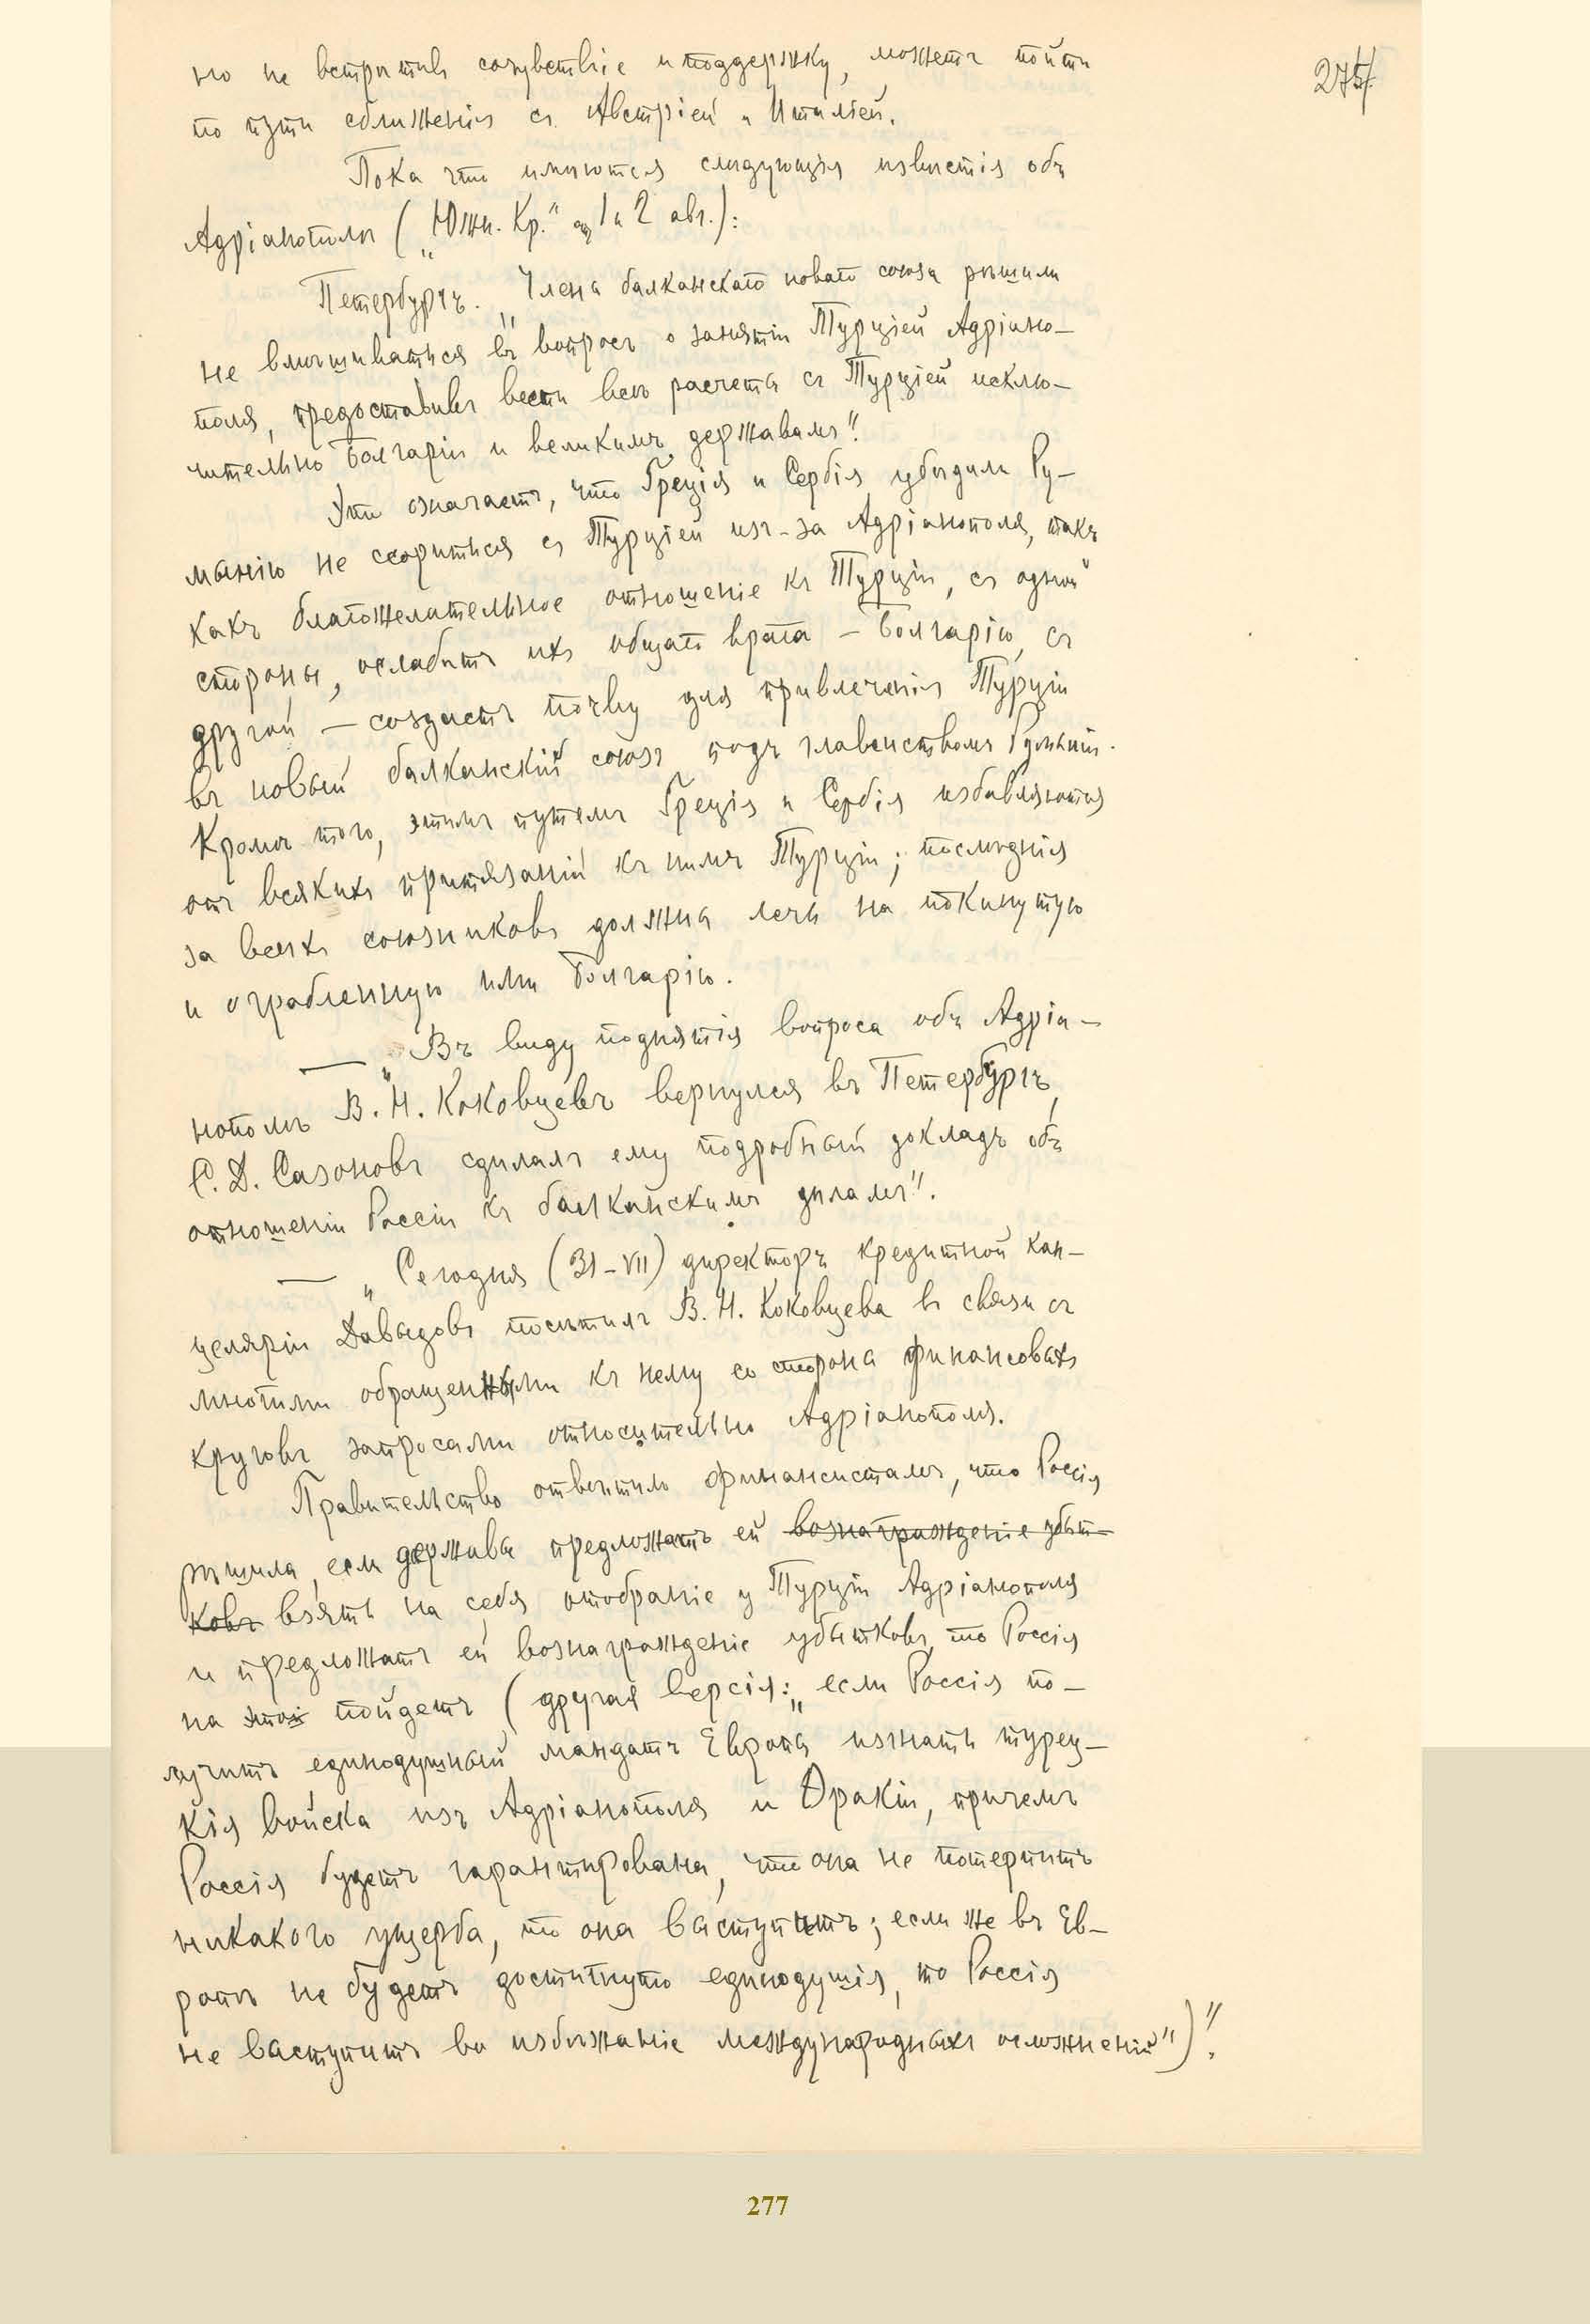 275
но не встрѣтивъ сочувствіе и поддержку, можетъ пойти
по пути сближенія съ Австріей и Италіей.
Пока что имѣются слѣдующія извѣстія объ
Адріанополѣ („Южн. Кр.“ отъ 1 и 2 авг.):
Петербургъ. „Члены балканскаго новаго союза рѣшили
не вмѣшиваться въ вопросъ о занятіи Турціей Адріано-
поля, предоставивъ вести всѣ расчеты съ Турціей исклю-
чительно Болгаріи и великимъ державамъ“.
Это означаетъ, что Греція и Сербія убѣдили Ру-
мынію не ссориться съ Турціей изъ-за Адріанополя, такъ
какъ благожелательное отношеніе къ Турціи, съ одной
стороны, ослабитъ ихъ общаго врага – Болгарію, съ
другой – создастъ почву для привлеченія Турціи
въ новый балканскій союзъ подъ главенствомъ Румыніи.
Кромѣ того, этимъ путемъ Греція и Сербія избавляются
отъ всякихъ притязаній къ нимъ Турціи; послѣднія
за всѣхъ союзниковъ должна лечь на покинутую
и ограбленную ими Болгарію.
— „Въ виду поднятія вопроса объ Адріа-
нополѣ В. Н. Коковцевъ вернулся въ Петербургъ,
С. Д. Сазоновъ сдѣлалъ ему подробный докладъ объ
отношеніи Россіи къ балканскимъ дѣламъ“.
— „Сегодня (31-VII) директоръ кредитной кан-
целяріи Давыдовъ посѣтилъ В. Н. Коковцева въ связи съ
многими обращенными къ нему со стороны финансовыхъ
круговъ запросами относительно Адріанополя.
Правительство отвѣтило финансистамъ, что Россія
рѣшила, если державы предложатъ ей вознагражденіе убыт-
ковъ взять на себя отобраніе у Турціи Адріанополя
и предложатъ ей вознагражденіе убытковъ, то Россія
на это пойдетъ (другая версія: „если Россія по-
лучитъ единодушный мандатъ Европы изгнать турец-
кія войска изъ Адріанополя и Ѳракіи, причемъ
Россія будетъ гарантирована, что она не потерпитъ
никакого ущерба, то она выступитъ; если же въ Ев-
ропѣ не будетъ достигнуто единодушія, то Россія
не выступитъ во избѣжаніе международныхъ осложненій“)“.
277